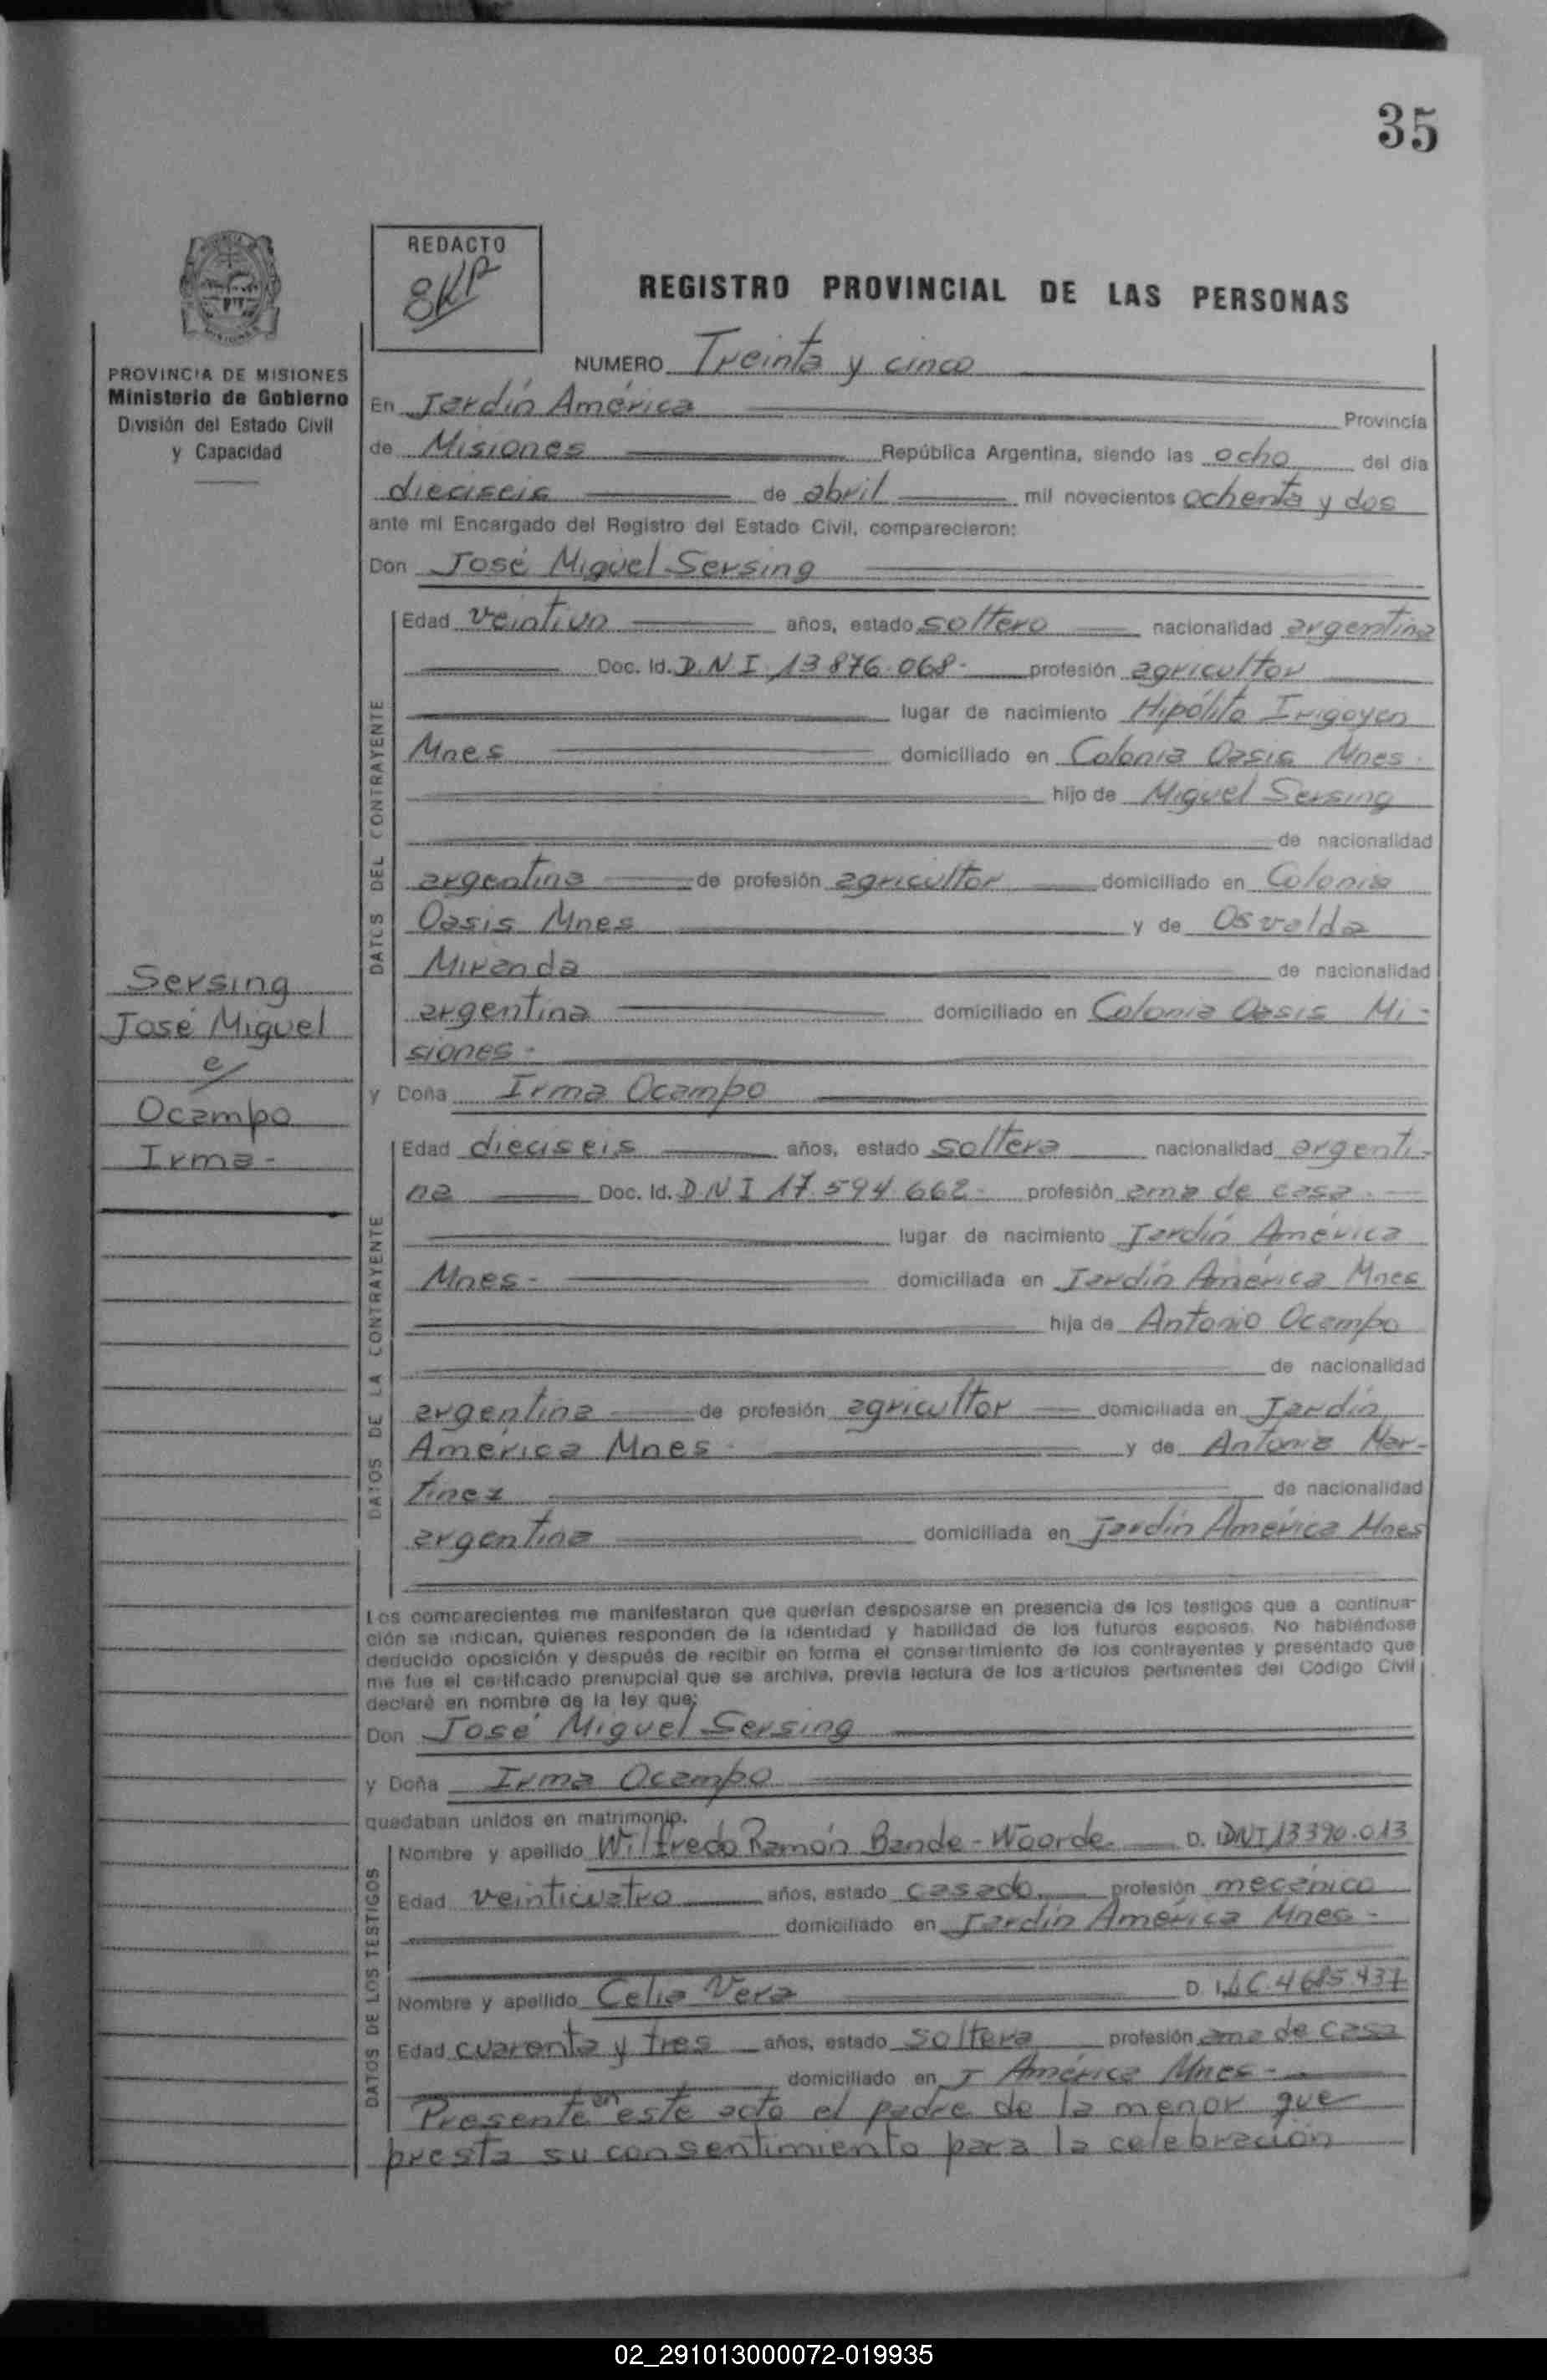 35
REDACTO
REGISTRO PROVINCIAL DE LAS PERSONAS
PROVINCIA DE MISIONES
Ministerio de Gobierno
División del Estado Civil
y Capacidad
NUMERO Treinta y cinco
En Jardín América Provincia
de Misiones República Argentina, siendo las ocho del día
dieciseis de abril mil novecientos ochenta y dos
ante mi Encargado del Registro del Estado Civil, comparecieron:
Don José Miguel Sersing
DATOS DEL CONTRAYENTE
Edad veintiun años, estado soltero nacionalidad argentina
Doc. Id. D.N.I 13876.068- profesión agricultor
lugar de nacimiento Hipólito Irigoyen
Mnes domiciliado en Colonia Oasis Mnes.
hijo de Miguel Sersing
de nacionalidad
argentina de profesión agricultor domiciliado en Colonia
Oasis Mnes y de Osvalda
Miranda de nacionalidad
argentina domiciliado en Colonia Oasis Mi-
siones-
Sersing
José Miguel
c/
Ocampo
Irma-
y Doña Irma Ocampo
DATOS DE LA CONTRAYENTE
Edad dieciseis años, estado soltera nacionalidad argenti-
na Doc. Id. D.N.I 17.594.662- profesión ama de casa.
lugar de nacimiento Jardín América
Mnes- domiciliada en Jardín América Mnes
hija de Antonio Ocampo
de nacionalidad
argentina de profesión agricultor domiciliada en Jardín
América Mnes- y de Antonia Mar-
tinez de nacionalidad
argentina domiciliada en Jardín América Mnes
Los comparecientes me manifestaron que querían desposarse en presencia de los testigos que a continua-
ción se indican, quienes responden de la identidad y habilidad de los futuros esposos. No habiéndose
deducido oposición y después de recibir en forma el consentimiento de los contrayentes y presentado que
me fue el certificado prenupcial que se archiva, previa lectura de los artículos pertinentes del Código Civil
declaré en nombre de la ley que:
Don José Miguel Sersing
y Doña Irma Ocampo
quedaban unidos en matrimonio.
DATOS DE LOS TESTIGOS
Nombre y apellido Wilfredo Ramón Bande-Woorde. D. DNI 13390.013
Edad veinticuatro años, estado casado profesión mecánico
domiciliado en Jardín América Mnes-
Nombre y apellido Celia Vera D. I. L.C. 4685.437
Edad cuarenta y tres años, estado soltera profesión ama de casa
domiciliado en J América Mnes-
Presente en este acto el padre de la menor que
presta su consentimiento para la celebración
02_291013000072-019935